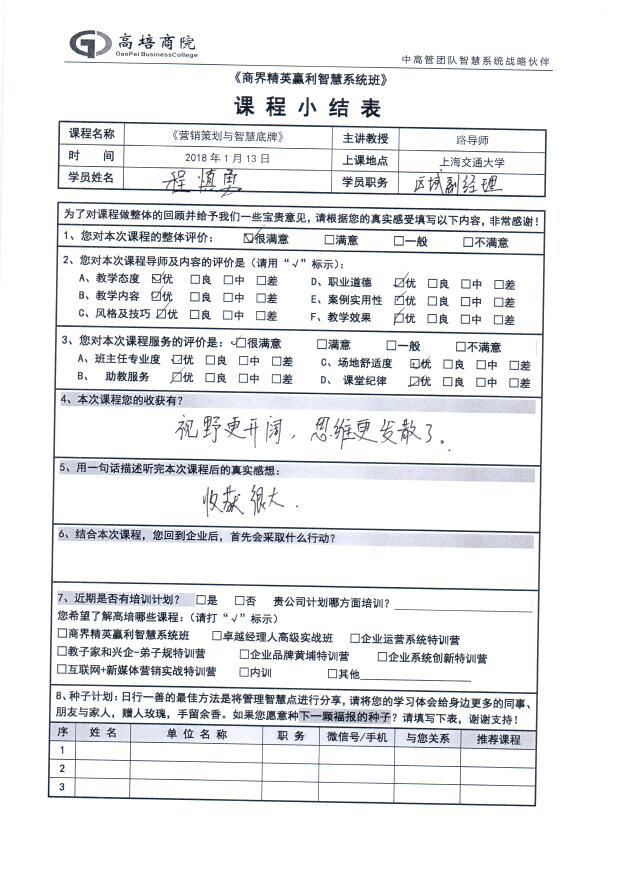 高培商院
GaoPei BusinessCollege
中高管团队智慧系统战略伙伴
《商界精英赢利智慧系统班》
课程小结表
课程名称 《营销策划与智慧底牌》 主讲教授 路导师
时 间 2018年1月13日 上课地点 上海交通大学
学员姓名 程慎勇 学员职务 区域副经理
为了对课程做整体的回顾并给予我们一些宝贵意见，请根据您的真实感受填写以下内容，非常感谢！
1、您对本次课程的整体评价： ☑很满意 □满意 □一般 □不满意
2、您对本次课程导师及内容的评价是（请用“√”标示）：
A、教学态度 ☑优 □良 □中 □差 D、职业道德 ☑优 □良 □中 □差
B、教学内容 ☑优 □良 □中 □差 E、案例实用性 ☑优 □良 □中 □差
C、风格及技巧 ☑优 □良 □中 □差 F、教学效果 ☑优 □良 □中 □差
3、您对本次课程服务的评价是： ☑很满意 □满意 □一般 □不满意
A、班主任专业度 ☑优 □良 □中 □差 C、场地舒适度 ☑优 □良 □中 □差
B、 助教服务 ☑优 □良 □中 □差 D、 课堂纪律 ☑优 □良 □中 □差
4、本次课程您的收获有？
视野更开阔，思维更发散了。
5、用一句话描述听完本次课程后的真实感想：
收获很大.
6、结合本次课程，您回到企业后，首先会采取什么行动？
7、近期是否有培训计划？ □是 □否 贵公司计划哪方面培训？
您希望了解高培哪些课程：（请打“√”标示）
□商界精英赢利智慧系统班 □卓越经理人高级实战班 □企业运营系统特训营
□教子家和兴企-弟子规特训营 □企业品牌黄埔特训营 □企业系统创新特训营
□互联网+新媒体营销实战特训营 □内训 □其他
8、种子计划：日行一善的最佳方法是将管理智慧点进行分享，请将您的学习体会给身边更多的同事、
朋友与家人，赠人玫瑰，手留余香。如果您愿意种下一颗福报的种子？请填写下表，谢谢支持！
序 姓 名 单 位 名 称 职 务 微信号/手机 与您关系 推荐课程
1
2
3